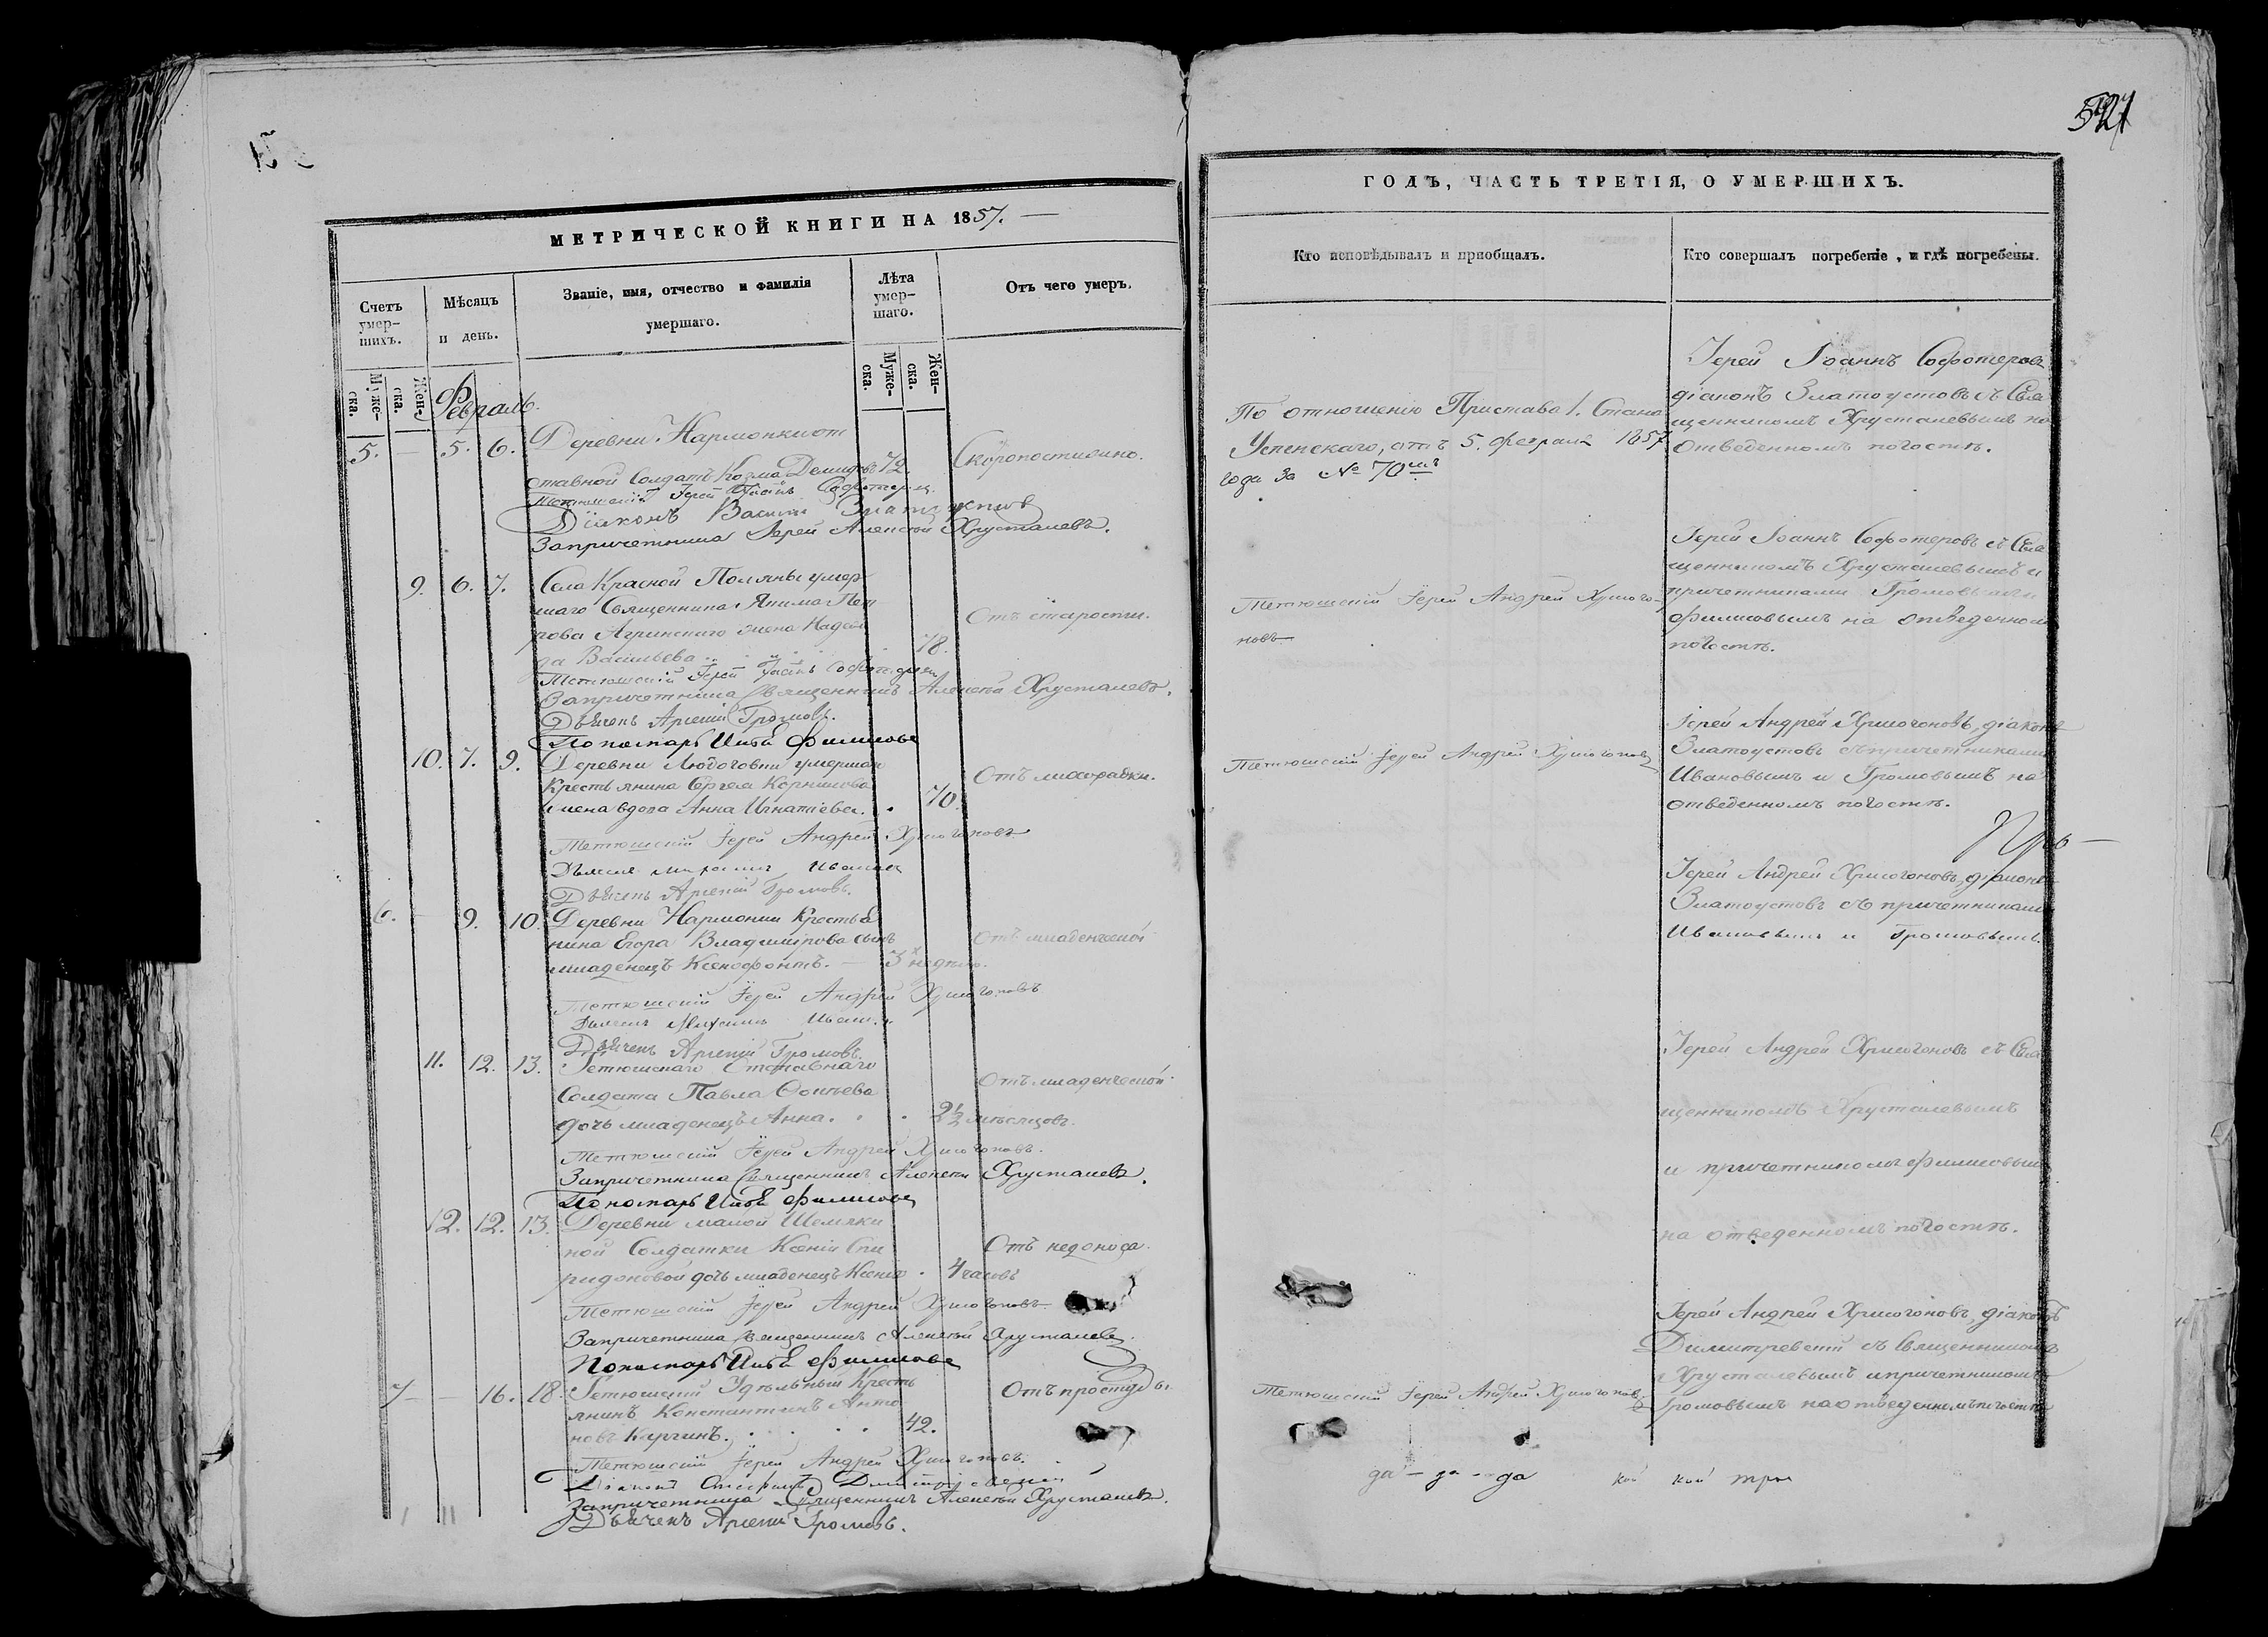 МЕТРИЧЕСКОЙ КНИГИ НА 1857.
Счетъ умер-шихъ.
Мѣсяцъ и день.
Званіе, имя, отчество и фамилія умершаго.
Лѣта умер-шаго.
Отъ чего умеръ.
Муже-ска.
Жен-ска.
Муже-ска.
Жен-ска.
Февраль.
5. — 5. 6. Деревни Нармонки от
ставной Солдатъ Козма Демидовъ 72. Скоропостижно.
Тетюшскій Іерей Іоаннъ Софотеровъ
Діаконъ Василій Златоустовъ
За причетника Іерей Алексей Хрусталевъ.
9. 6. 7. Села Красной Поляны умер
шаго Священника Якима Пет
рова Агринскаго жена Надеж
да Васильева 78. Отъ старости.
Тетюшскій Іерей Іоаннъ Софотеровъ
За причетника Священникъ Алексей Хрусталевъ.
Дьячекъ Арсеній Громовъ.
Пономарь Илья Филиповъ
10. 7. 9. Деревни Любоговки умершаго
Крестьянина Сергея Корнилова
жена вдова Анна Игнатіева. 70. Отъ лихорадки.
Тетюшскій Іерей Андрей Хрисогоновъ
Дьячекъ Михаилъ Ивановъ
Дьячекъ Арсеній Громовъ.
6. — 9. 10. Деревни Нармонки Крестья
нина Егора Владимірова сынъ
младенецъ Ксенофонтъ. — 3х недель. Отъ младенческой
Тетюшскій Іерей Андрей Хрисогоновъ
Дьячекъ Михаилъ Ивановъ
Дьячекъ Арсеній Громовъ.
11. 12. 13. Тетюшскаго Отставнаго
Солдата Павла
дочь младенецъ Анна. 2½ месяцовъ. Отъ младенческой
Тетюшскій Іерей Андрей Хрисогоновъ.
За причетника Священникъ Алексей Хрусталевъ.
Пономарь Илья Филиповъ
12. 12. 13. Деревни малой Шемяки
ной Солдатки Ксеніи Спи
ридоновой дочь младенецъ Ксенія 4 часовъ Отъ недоноса.
Тетюшскій Іерей Андрей Хрисогоновъ
За причетника Священникъ Алексей Хрусталевъ
Пономарь Илья Филиповъ
7 — 16. 18. Тетюшский Удѣльный Кресть
янинъ Константинъ Анто
новъ Каргинъ. 42. Отъ простуды.
Тетюшскій Іерей Андрей Хрисогоновъ.
Діаконъ Димитревскій
За причетника Священникъ Алексей Хрусталевъ.
Дьячекъ Арсеній Громовъ.
ГОДЪ, ЧАСТЬ ТРЕТІЯ, О УМЕРШИХЪ.
Кто исповѣдывалъ и пріобщалъ.
Кто совершалъ погребеніе, и гдѣ погребены.
По отношенію Пристава 1. Стана
Успенскаго, отъ 5. февраля 1857
года за № 70
Іерей Іоаннъ Софотеровъ
діаконъ Златоустовъ съ Свя
щенникомъ Хрусталевымъ на
отведенномъ погостѣ.
Тетюшскій Іерей Андрей Хрисого-
новъ
Іерей Іоаннъ Софотеровъ съ Свя
щенникомъ Хрусталевымъ и
причетниками Громовымъ и
Филиповымъ на отведенномъ
погостѣ.
Тетюшскій Іерей Андрей Хрисогоновъ
Іерей Андрей Хрисогоновъ, діаконъ
Златоустовъ съ причетниками
Ивановымъ и Громовымъ на
отведенномъ погостѣ.
Іерей Андрей Хрисогоновъ, діаконъ
Златоустовъ съ причетниками
Ивановымъ и Громовымъ.
Іерей Андрей Хрисогоновъ съ Свя
щенникомъ Хрусталевымъ
и причетникомъ Филиповымъ
на отведенномъ погостѣ.
Тетюшскій Іерей Андрей Хрисогоновъ
Іерей Андрей Хрисогоновъ, діаконъ
Димитревскій съ Священникомъ
Хрусталевымъ и причетникомъ
Громовымъ на отведенномъ погостѣ
да - да - да кой кой три